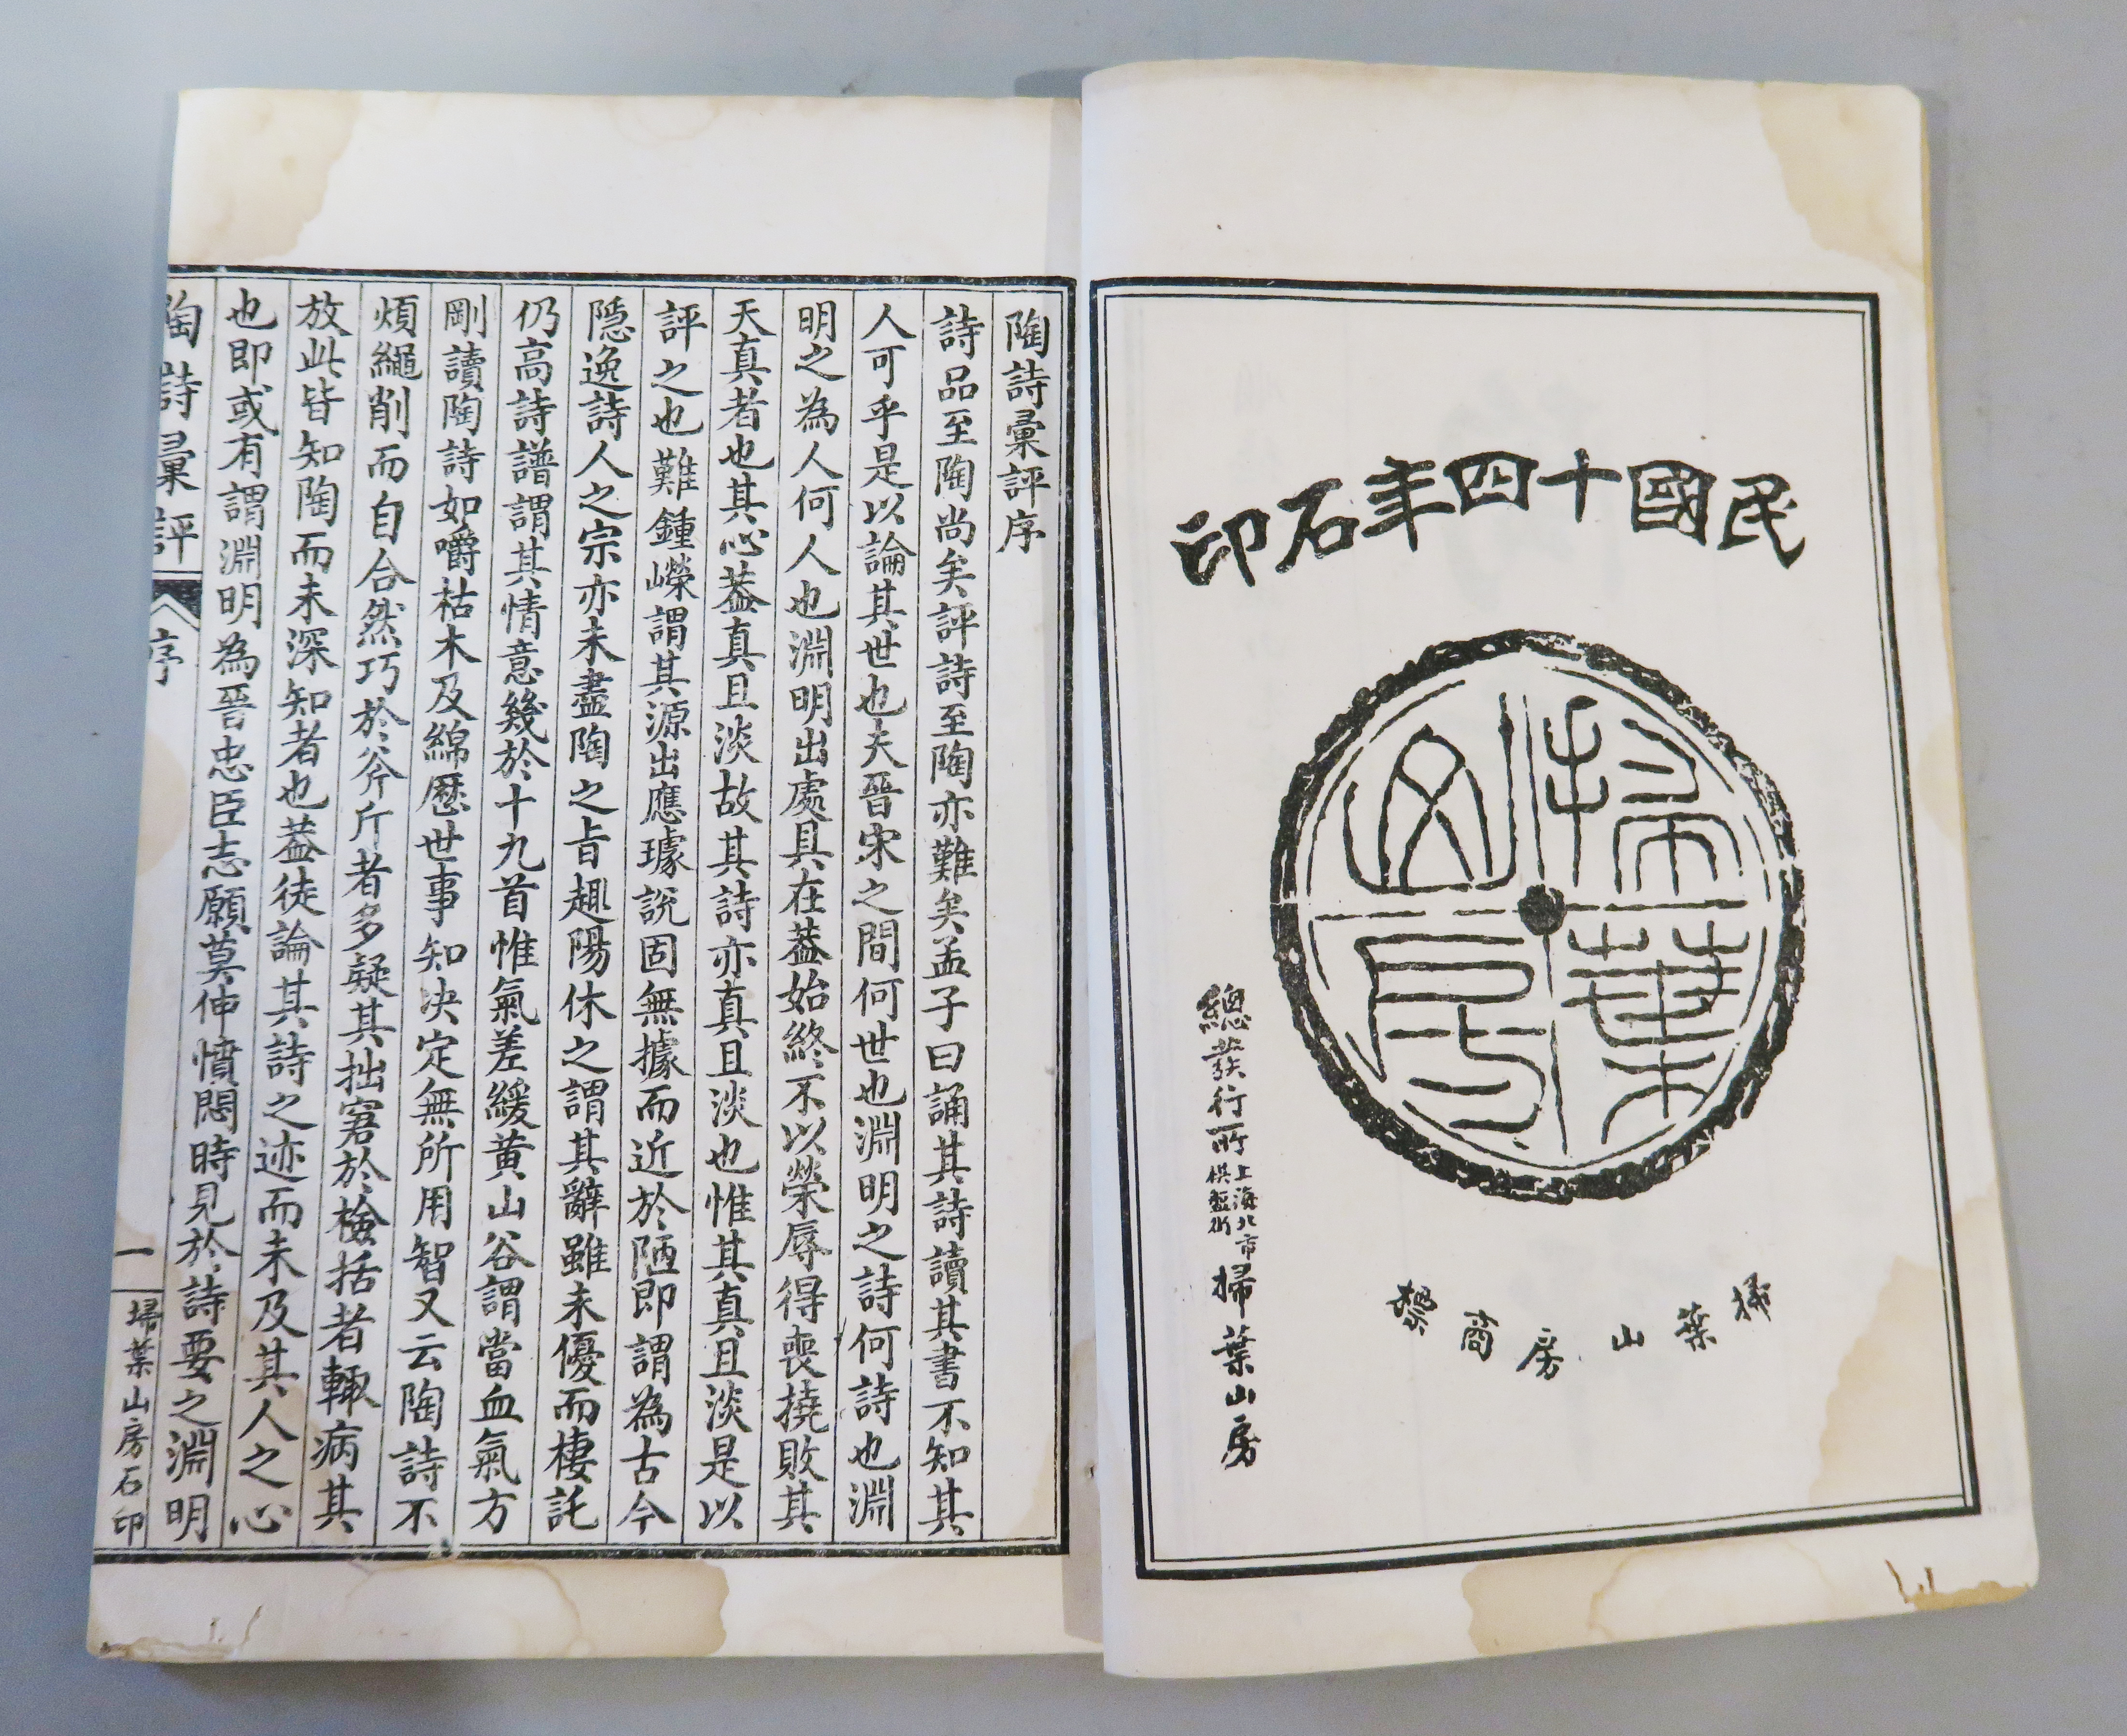 民國十四年石印
掃葉山房
掃葉山房商標
總發行所上海北市棋盤街掃葉山房
陶詩彙評序
詩品至陶尚矣評詩至陶亦難矣孟子曰誦其詩讀其書不知其
人可乎是以論其世也夫晉宋之間何世也淵明之詩何詩也淵
明之為人何人也淵明出處具在葢始終不以榮辱得喪撓敗其
天真者也其心葢真且淡故其詩亦真且淡也惟其真且淡是以
評之也難鍾嶸謂其源出應璩說固無據而近於陋即謂為古今
隱逸詩人之宗亦未盡陶之旨趣陽休之謂其辭雖未優而棲託
仍高詩譜謂其情意幾於十九首惟氣差緩黃山谷謂當血氣方
剛讀陶詩如嚼枯木及綿歷世事知决定無所用智又云陶詩不
煩繩削而自合然巧於斧斤者多疑其拙窘於檢括者輒病其
放此皆知陶而未深知者也葢徒論其詩之迹而未及其人之心
也即或有謂淵明為晉忠臣志願莫伸憤悶時見於詩要之淵明
陶詩彙評 序 一 埽葉山房石印